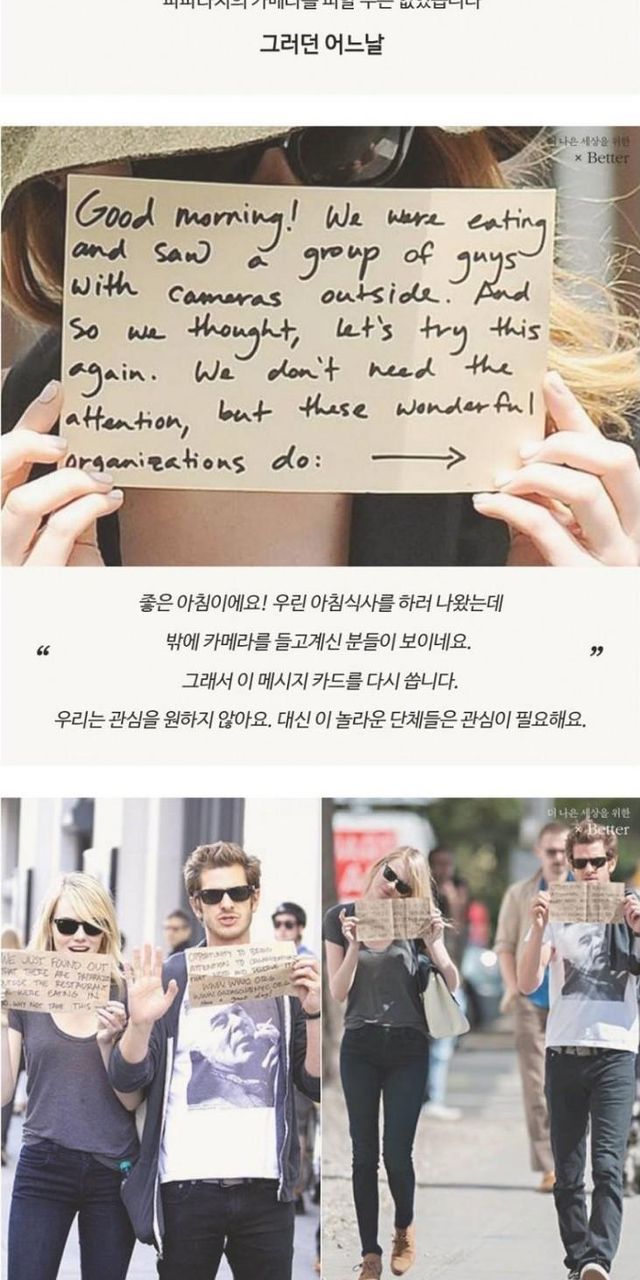 그러던 어느날
더 나은 세상을 위한
× Better
Good morning! We were eating
and saw a group of guys
with cameras outside. And
so we thought, let's try this
again. We don't need the
attention, but these wonderful
organizations do: →
좋은 아침이에요! 우린 아침식사를 하러 나왔는데
“ 밖에 카메라를 들고계신 분들이 보이네요. ”
그래서 이 메시지 카드를 다시 씁니다.
우리는 관심을 원하지 않아요. 대신 이 놀라운 단체들은 관심이 필요해요.
더 나은 세상을 위한
× Better
WE JUST FOUND OUT
THAT THERE ARE PAPARAZZI
OUTSIDE THE RESTAURANT
WE WERE EATING IN
SO WHY NOT TAKE THIS
OPPORTUNITY TO BRING
ATTENTION TO ORGANIZATIONS
THAT NEED AND DESERVE IT
WWW.WWO.ORG